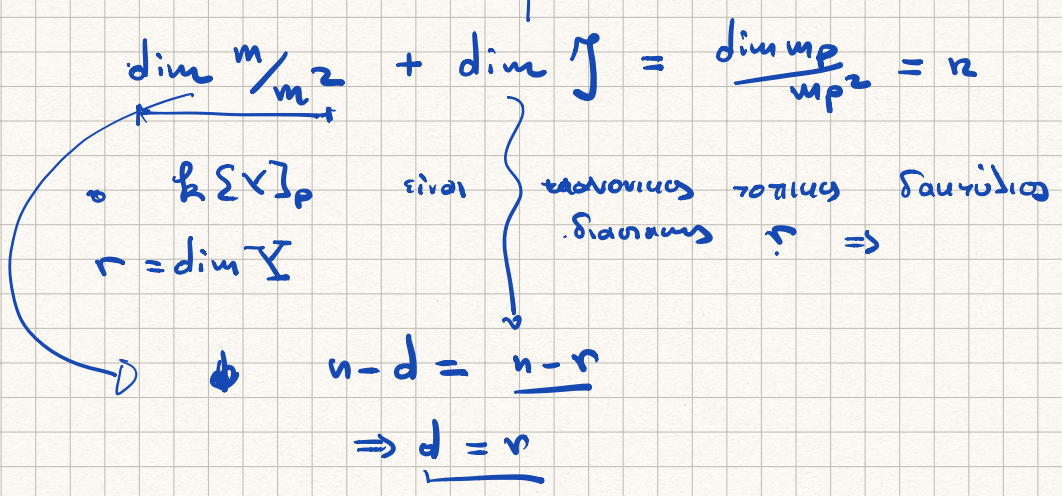 dim m/m² + dim J = dim mp / mp² = n
k[Y]p είναι κανονικος τοπικος δακτύλιος
r = dim Y διαστασης r ⇒
n - d = n - r
⇒ d = r